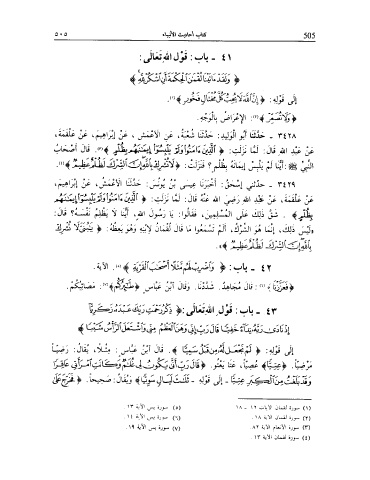 ٥٠٥ كتاب أحاديث الأنبياء 505
٤١ - باب: قَوْلِ اللهِ تَعَالَى:
﴿وَلَقَدْ ءَاتَيْنَا لُقْمَٰنَ ٱلْحِكْمَةَ أَنِ ٱشْكُرْ لِلَّهِ﴾
إلَى قَوْلِهِ: ﴿إِنَّ ٱللَّهَ لَا يُحِبُّ كُلَّ مُخْتَالٍ فَخُورٍ﴾(١).
﴿وَلَا تُصَعِّرْ﴾(٢): الإعْرَاضُ بِالْوَجْهِ.
٣٤٢٨ - حَدَّثَنَا أَبُو الْوَلِيدِ: حَدَّثَنَا شُعْبَةُ، عَنِ الأَعْمَشِ، عَنْ إِبْرَاهِيمَ، عَنْ عَلْقَمَةَ،
عَنْ عَبْدِ اللهِ قَالَ: لَمَّا نَزَلَتْ: ﴿ٱلَّذِينَ ءَامَنُوا۟ وَلَمْ يَلْبِسُوٓا۟ إِيمَٰنَهُم بِظُلْمٍ﴾(٣). قَالَ أَصْحَابُ
النَّبِيِّ ﷺ: أَيُّنَا لَمْ يَلْبِسْ إِيمَانَهُ بِظُلْمٍ؟ فَنَزَلَتْ: ﴿لَا تُشْرِكْ بِٱللَّهِ إِنَّ ٱلشِّرْكَ لَظُلْمٌ عَظِيمٌ﴾(٤).
٣٤٢٩ - حَدَّثَنِي إِسْحٰقُ: أَخْبَرَنَا عِيسَى بْنُ يُونُسَ: حَدَّثَنَا الأَعْمَشُ، عَنْ إِبْرَاهِيمَ،
عَنْ عَلْقَمَةَ، عَنْ عَبْدِ اللهِ رَضِيَ اللهُ عَنْهُ قَالَ: لَمَّا نَزَلَتْ: ﴿ٱلَّذِينَ ءَامَنُوا۟ وَلَمْ يَلْبِسُوٓا۟ إِيمَٰنَهُم
بِظُلْمٍ﴾. شَقَّ ذَلِكَ عَلَى الْمُسْلِمِينَ، فَقَالُوا: يَا رَسُولَ اللهِ، أَيُّنَا لَا يَظْلِمُ نَفْسَهُ؟ قَالَ:
«لَيْسَ ذَلِكَ، إِنَّمَا هُوَ الشِّرْكُ، أَلَمْ تَسْمَعُوا مَا قَالَ لُقْمَانُ لِابْنِهِ وَهُوَ يَعِظُهُ: ﴿يَٰبُنَىَّ لَا تُشْرِكْ
بِٱللَّهِ إِنَّ ٱلشِّرْكَ لَظُلْمٌ عَظِيمٌ﴾».
٤٢ - باب: ﴿وَٱضْرِبْ لَهُم مَّثَلًا أَصْحَٰبَ ٱلْقَرْيَةِ﴾(٥) الآيةَ.
﴿فَعَزَّزْنَا﴾(٦): قَالَ مُجَاهِدٌ: شَدَّدْنَا. وَقَالَ ابْنُ عَبَّاسٍ: ﴿طَٰٓئِرُكُم﴾(٧). مَصَائِبُكُمْ.
٤٣ - باب: قَوْلِ اللهِ تَعَالَى: ﴿ذِكْرُ رَحْمَتِ رَبِّكَ عَبْدَهُۥ زَكَرِيَّآ
إِذْ نَادَىٰ رَبَّهُۥ نِدَآءً خَفِيًّا قَالَ رَبِّ إِنِّى وَهَنَ ٱلْعَظْمُ مِنِّى وَٱشْتَعَلَ ٱلرَّأْسُ شَيْبًا﴾
إِلَى قَوْلِهِ: ﴿لَمْ نَجْعَل لَّهُۥ مِن قَبْلُ سَمِيًّا﴾. قَالَ ابْنُ عَبَّاسٍ: مِثْلًا، يُقَالُ: رَضِيًّا
مَرْضِيًّا. ﴿عِتِيًّا﴾: عَصِيًّا، عَتَا يَعْتُو. ﴿قَالَ رَبِّ أَنَّىٰ يَكُونُ لِى غُلَٰمٌ وَكَانَتِ ٱمْرَأَتِى عَاقِرًا
وَقَدْ بَلَغْتُ مِنَ ٱلْكِبَرِ عِتِيًّا﴾ - إلى قوله - ﴿ثَلَٰثَ لَيَالٍ سَوِيًّا﴾ وَيُقَالُ: صَحِيحًا. ﴿فَخَرَجَ عَلَىٰ
(١) سورة لقمان الآيات ١٢ - ١٨
(٢) سورة لقمان الآية ١٨.
(٣) سورة الأنعام الآية ٨٢
(٤) سورة لقمان الآية ١٣.
(٥) سورة يس الآية ١٣
(٦) سورة يس الآية ١٤.
(٧) سورة يس الآية ١٩.